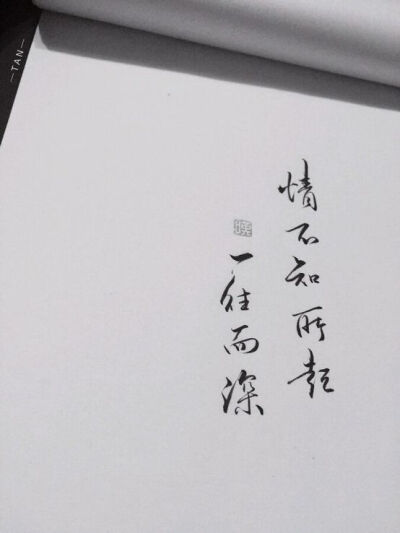 —TAN—
情不知所起
一往而深